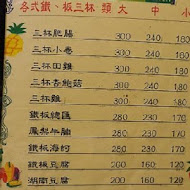 各式鐵、板三杯 類 大 中 小
三杯肥腸 300 240 180
三杯小卷 300 240 180
三杯田雞 300 240 180
三杯杏鮑菇 300 240 180
三杯雞 300 240 180
鐵板總匯 280 230 160
鳳梨牛腩 280 230 160
鐵板海蚵 280 230 160
鐵板豆腐 200 160 120
湖南豆腐 200 160 120